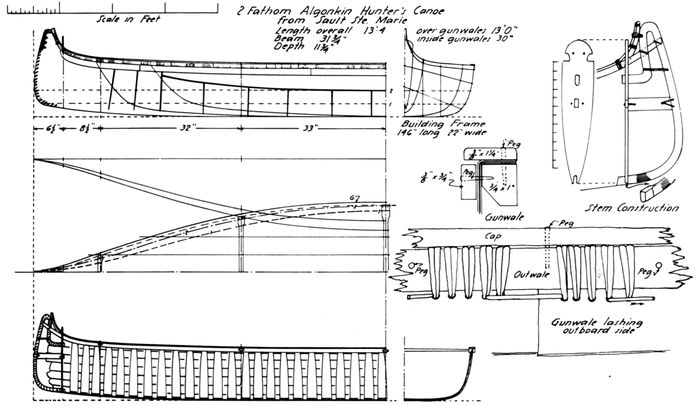 Scale in Feet
2 Fathom Algonkin Hunter's Canoe
from Sault Ste. Marie
Length overall 13'4 over gunwales 13'0"
Beam 31¾" inside gunwales 30"
Depth 11¾"
6½" 8½" 32" 33"
Building Frame
146" long 22" wide
Peg
Peg
¾ x 1"
Gunwale
Stem Construction
Peg
Cap
Peg
Outwale
Peg
Gunwale lashing
outboard side